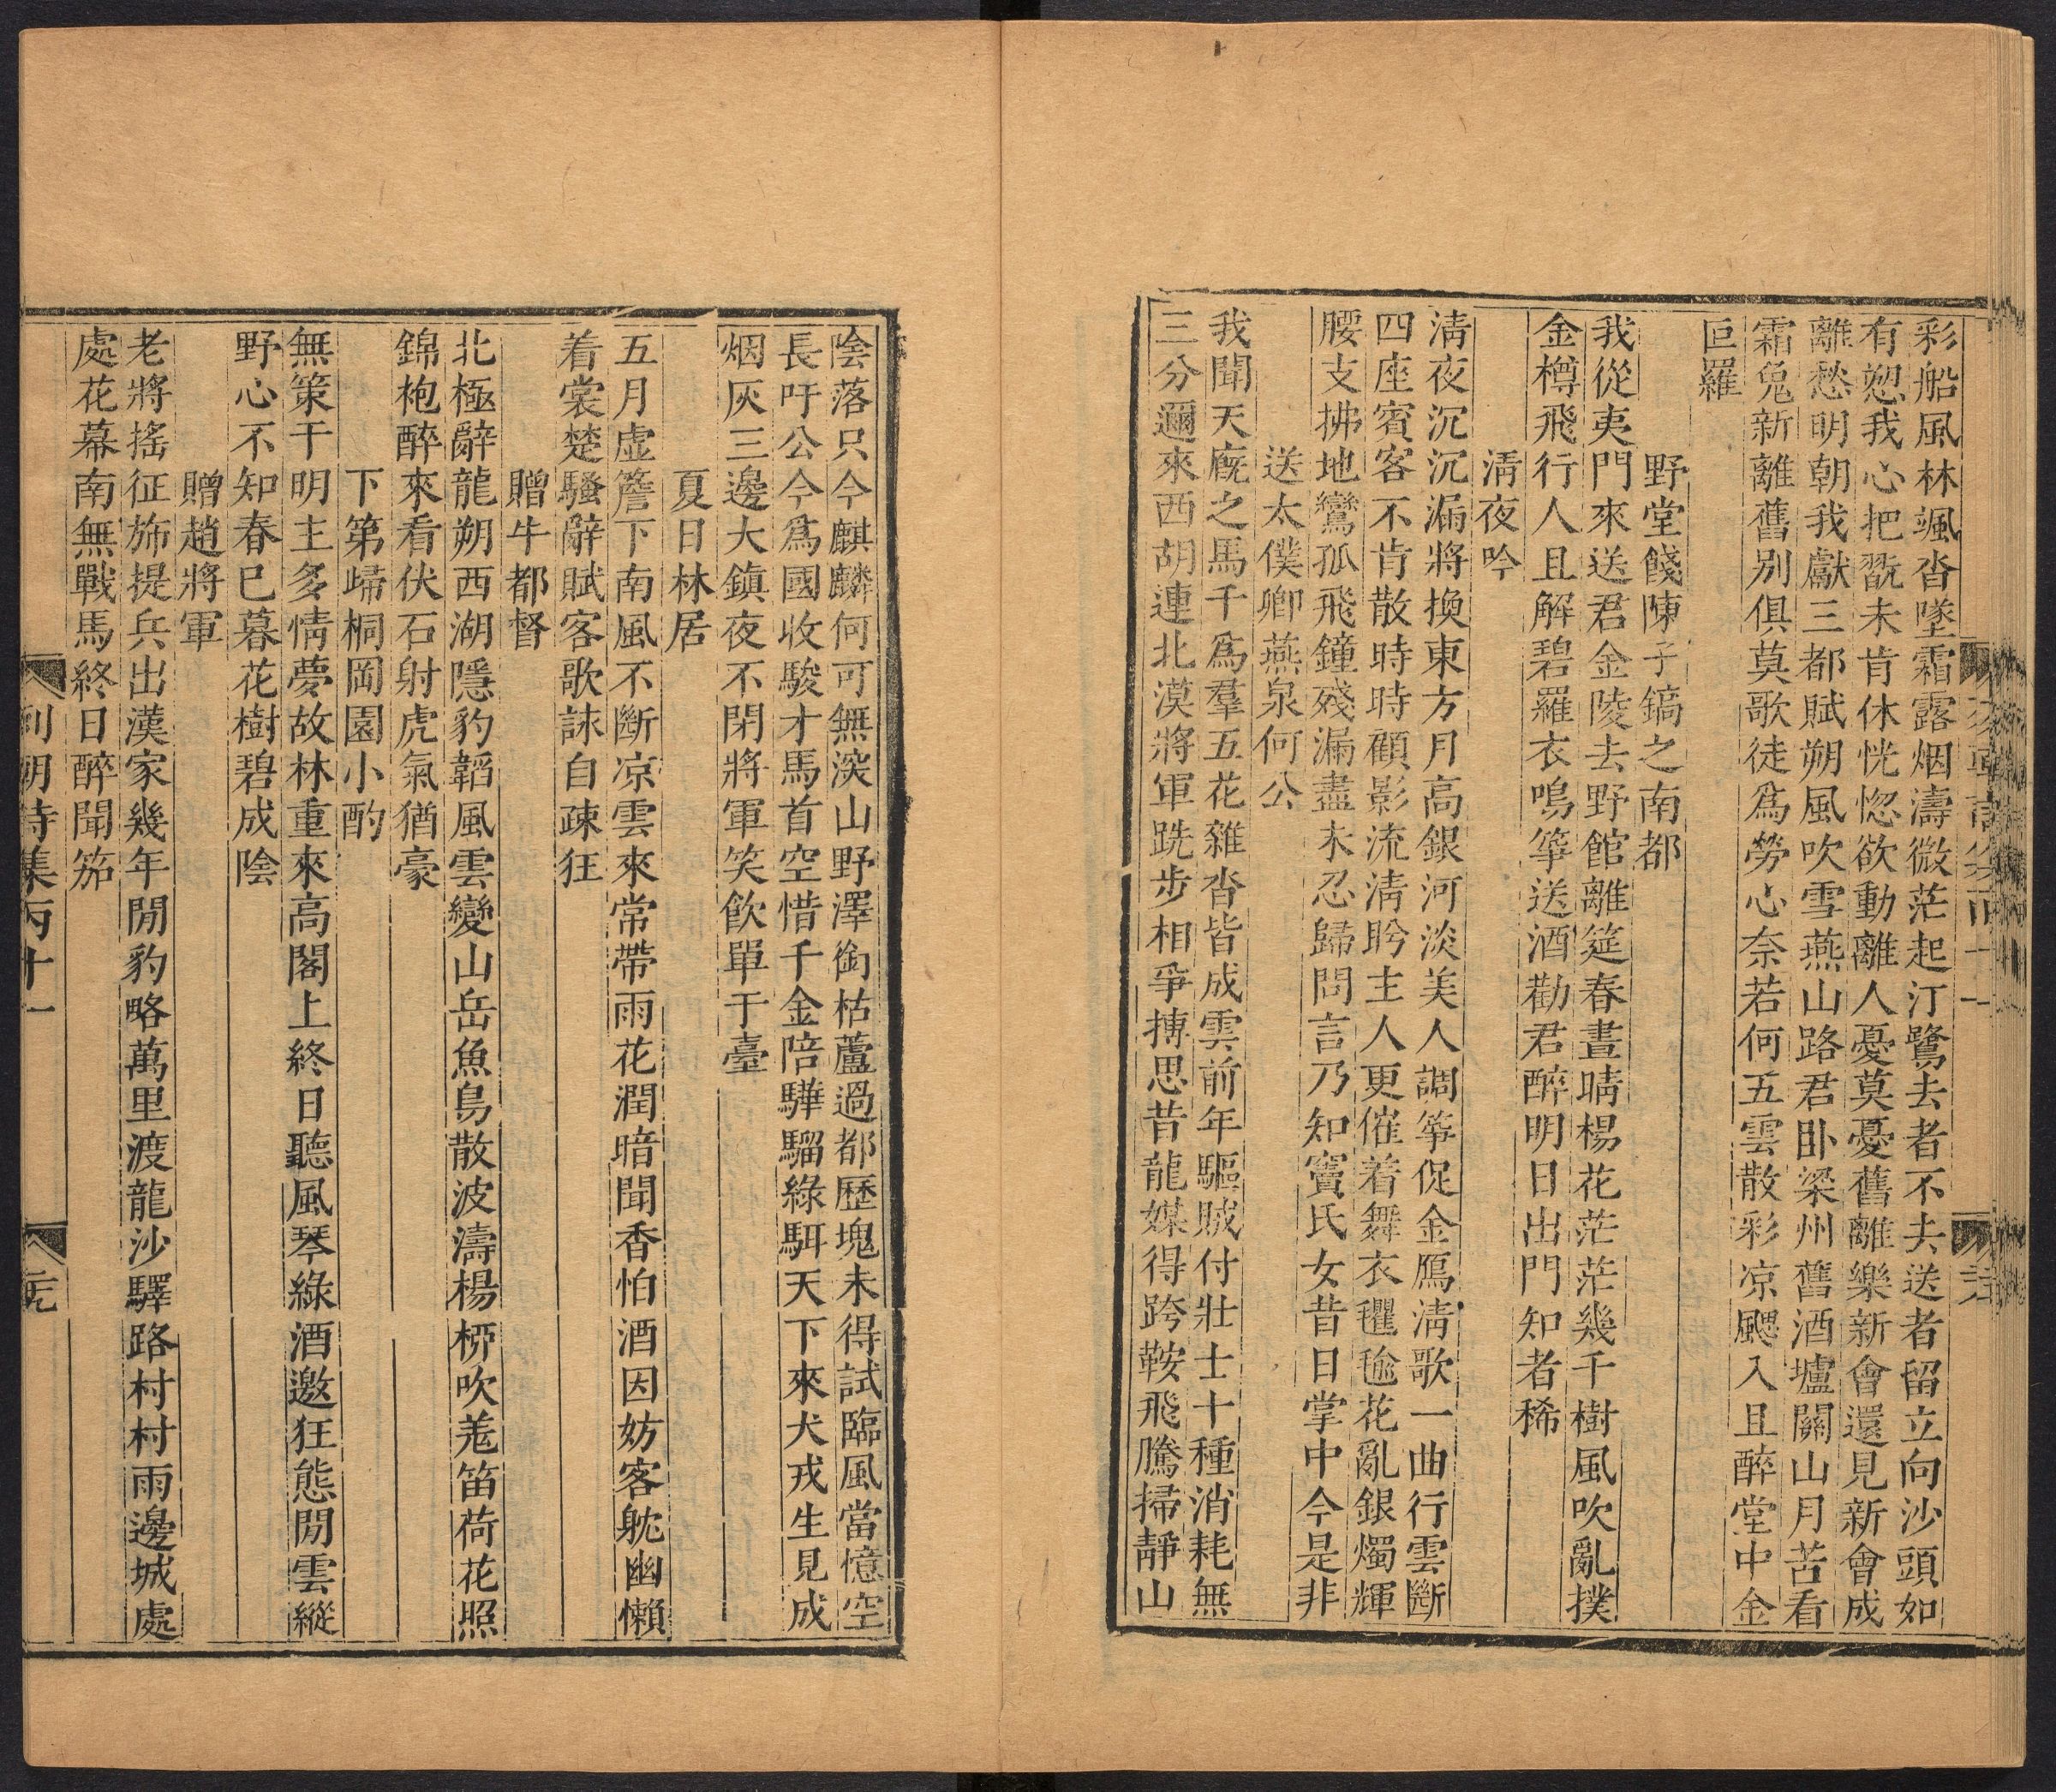 彩船風林颯沓墜霜露烟濤微茫起汀鷺去者不去送者留立向沙頭如
有恕我心把翫未肯休恍惚欲動離人憂莫憂舊離樂新會還見新會成
離愁明朝我獻三都賦朔風吹雪燕山路君卧梁州舊酒壚關山月苦看
霜兔新離舊別俱莫歌徒爲勞心奈若何五雲散彩凉飔入且醉堂中金
叵羅
野堂餞陳子鎬之南都
我從夷門來送君金陵去野館離筵春晝晴楊花茫茫幾千樹風吹亂撲
金樽飛行人且解碧羅衣鳴箏送酒勸君醉明日出門知者稀
淸夜吟
淸夜沉沉漏將換東方月高銀河淡美人調箏促金鴈淸歌一曲行雲斷
四座賓客不肯散時時顧影流淸盻主人更催着舞衣氍毹花亂銀燭輝
腰支拂地鸞孤飛鐘殘漏盡未忍歸問言乃知竇氏女昔日掌中今是非
送太僕卿燕泉何公
我聞天廐之馬千爲羣五花雜沓皆成雲前年驅賊付壯士十種消耗無
三分邇來西胡連北漠將軍跣步相爭摶思昔龍媒得跨鞍飛騰掃靜山
隂落只今麒麟何可無深山野澤齝枯蘆過都歷塊未得試臨風當憶空
長吁公今爲國收駿才馬首空惜千金陪驊騮綠駬天下來犬戎生見成
烟灰三邊大鎮夜不閉將軍笑飲單于臺
夏日林居
五月虛簷下南風不斷凉雲來常帶雨花潤暗聞香怕酒因妨客躭幽懶
着裳楚騷辭賦客歌詠自疎狂
贈牛都督
北極辭龍朔西湖隱豹韜風雲變山岳魚鳥散波濤楊柳吹羌笛荷花照
錦袍醉來看伏石射虎氣猶豪
下第歸桐岡園小酌
無策干明主多情夢故林重來高閣上終日聽風琴綠酒邀狂態閒雲縱
野心不知春已暮花樹碧成隂
贈趙將軍
老將搖征斾提兵出漢家幾年閒豹略萬里渡龍沙驛路村村雨邊城處
處花幕南無戰馬終日醉聞笳
列朝詩集丙十一